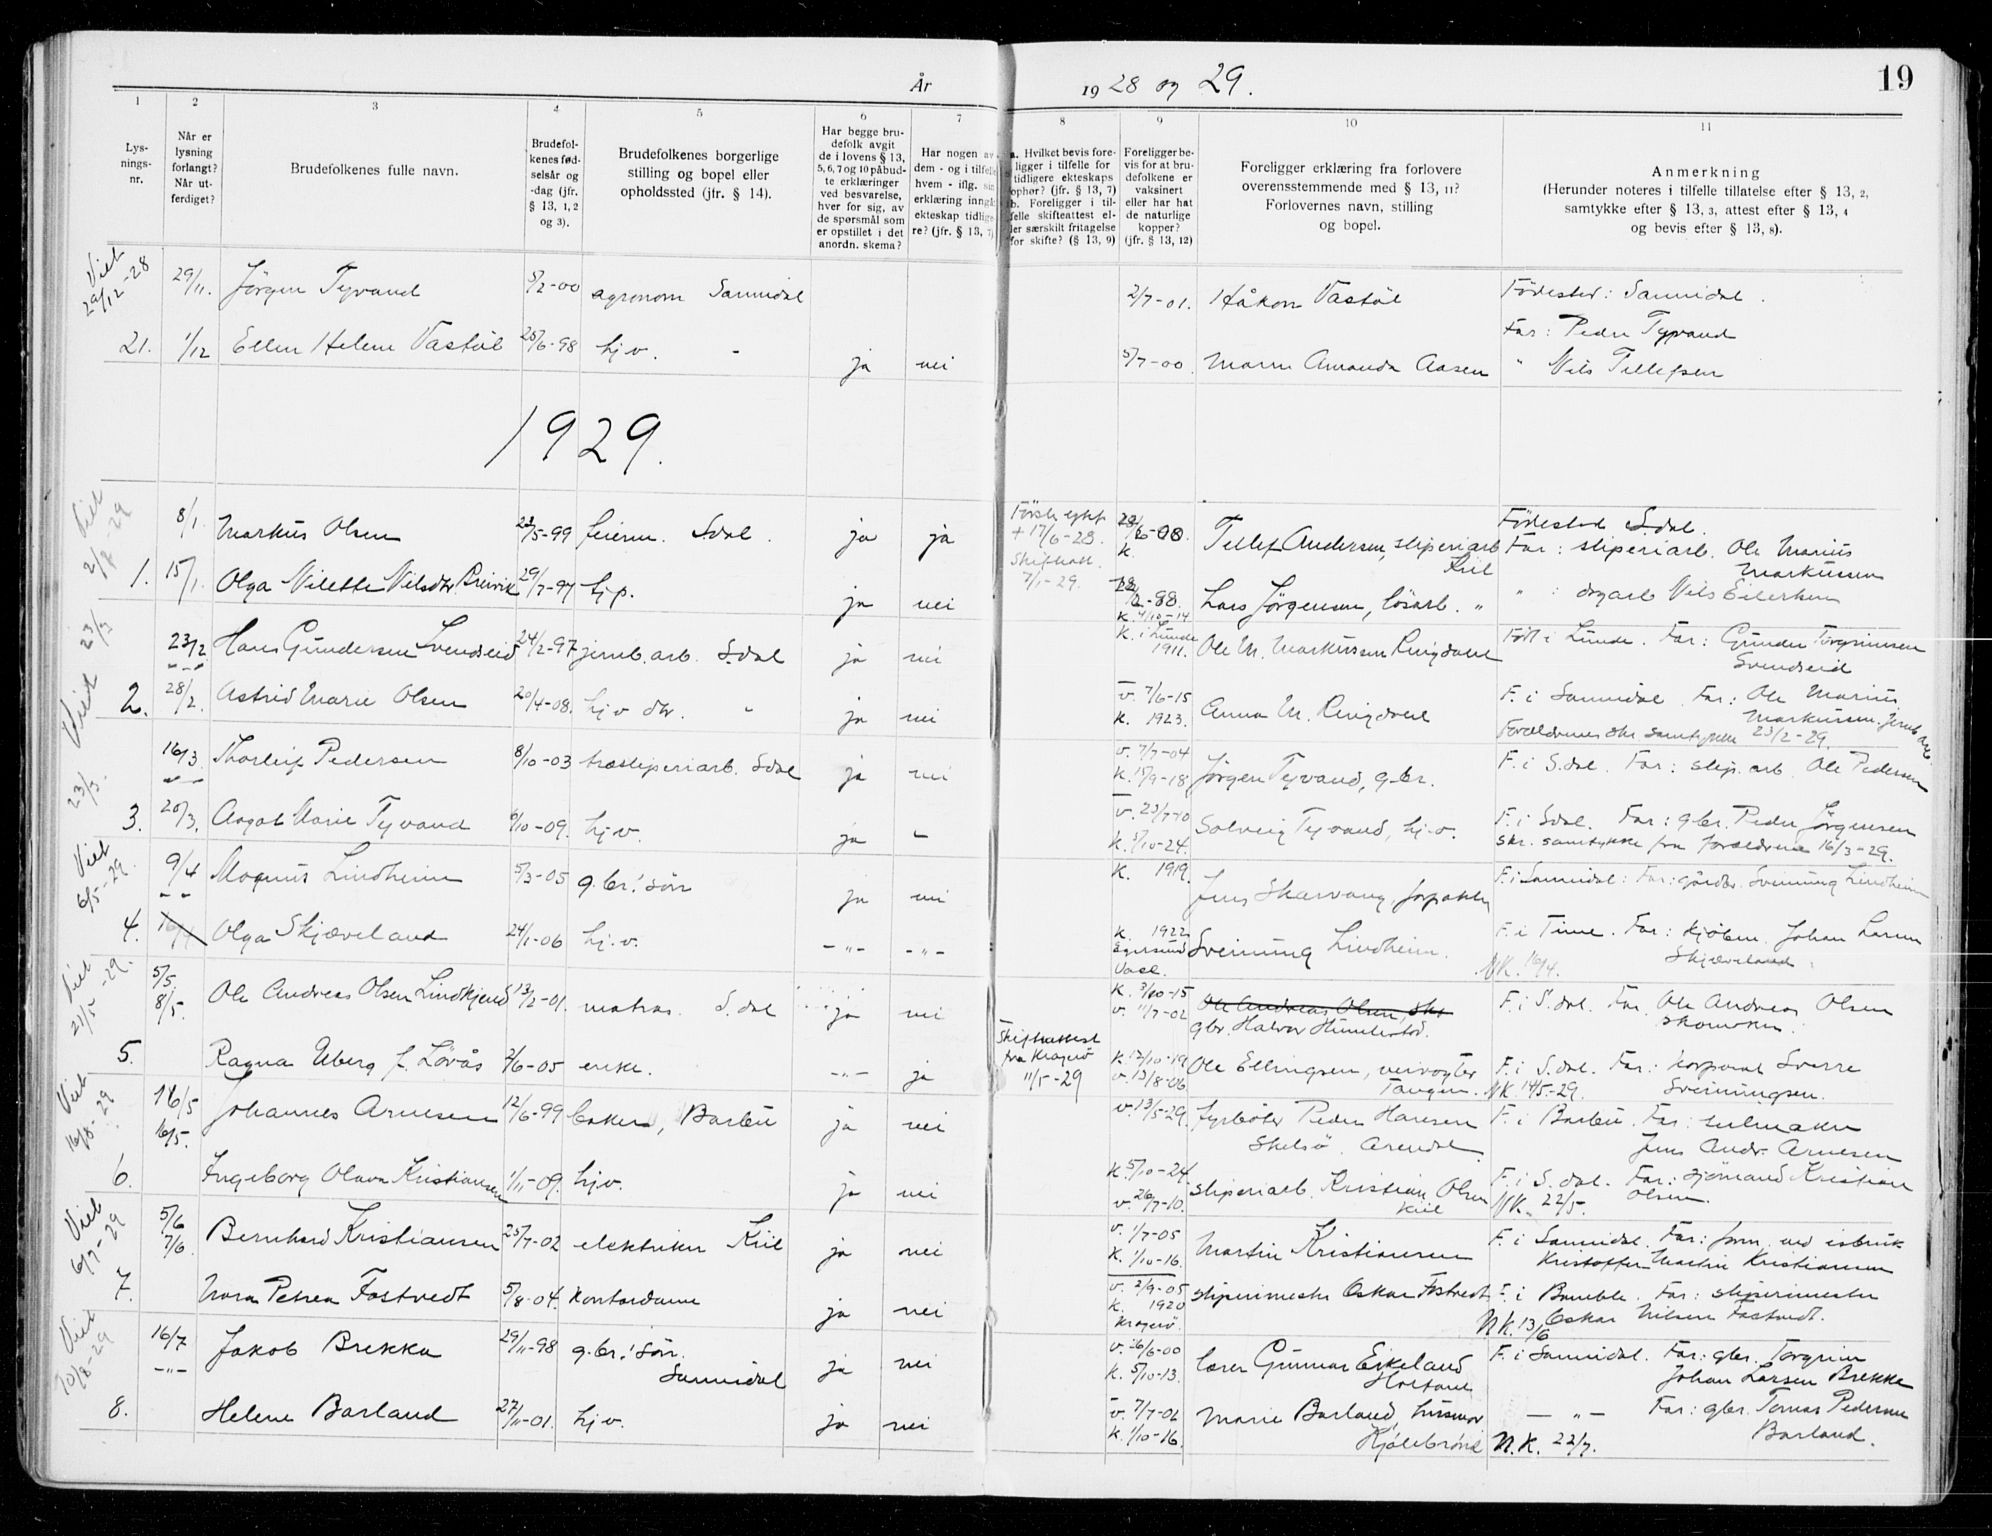 År 1928 og 29. 19
1 2 3 4 5 6 7 8 9 10 11
Lysnings-nr.
Når er lysning forlangt? Når utferdiget?
Brudefolkenes fulle navn.
Brudefolkenes fødselsår og -dag (jfr. § 13, 1, 2 og 3).
Brudefolkenes borgerlige stilling og bopel eller opholdssted (jfr. § 14).
Har begge brudefolk avgit de i lovens § 13, 5, 6, 7 og 10 påbudte erklæringer ved besvarelse, hver for sig, av de spørsmål som er opstillet i det anordn. skema?
Har nogen av dem - og i tilfelle hvem - iflg. sin erklæring inngått ekteskap tidligere? (jfr. § 13, 7)
a. Hvilket bevis foreligger i tilfelle for tidligere ekteskaps ophør? (jfr. § 13, 7) b. Foreligger i tilfelle skifteattest eller særskilt fritagelse for skifte? (§ 13, 9)
Foreligger bevis for at brudefolkene er vaksinert eller har hat de naturlige kopper? (jfr. § 13, 12)
Foreligger erklæring fra forlovere overensstemmende med § 13, 11? Forlovernes navn, stilling og bopel.
Anmerkning (Herunder noteres i tilfelle tillatelse efter § 13, 2, samtykke efter § 13, 3, attest efter § 13, 4 og bevis efter § 13, 8).
Viet 29/12-28 29/11. Jörgen Tyvand 5/2-00 agronom Sannidal 2/7-01. Håkon Vastöl Födested: Sannidal.
Far: Peder Tyvand
21. 1/12 Ellen Helene Vastöl 25/6-98 hj.v. " ja nei 5/7-00 Maren Amanda Aasen " Nils Tellefsen
1929.
Viet 8/1. Markus Olsen 23/5-99 feierm. Sdal. ja ja Første ektf. + 17/6-28. Skifteatt. 7/1-29. k. Tellef Andersen, sliperiarb. Kiil Födested Sdal. Far: sliperiarb. Ole Marius Markussen
1. 15/1. Olga Nilette Nilsdtr. Breivik 29/7-97 hj.p. ja nei k. 4/10-14 Lars Jörgensen, lösarb. " " : dagarb Nils Eilertsen
23/3 23/2 Hans Gundersen Svendseid 24/2-97 jernb.arb. Sdal ja nei k. i Lunde 1911. Ole M. Markussen Ringdalen Född i Lunde. Far: Gunder Torgrimsen Svendseid
Viet 2. 28/2. Astrid Marie Olsen 20/4-08. hj.v. dtr. " ja nei v. 7/6-15 k. 1923. Anna M. Ringdalen F. i Sannidal. Far: Ole Marius Markussen. Jernb.arb.
Foreldrenes skr samtykke 23/2-29.
23/3. 16/3 Thorleif Pedersen 8/10-03 træsliperiarb. Sdal ja nei v. 7/7-04 k. 15/9-18 Jörgen Tyvand, gbr. F. i S.dal. Far: slip. arb. Ole Pedersen
3. 20/3. Aagot Marie Tyvand 6/10-09. hj.v. ja - v. 23/7-10 k. 5/10-24. Solveig Tyvand, hj.v. F. i Sdal. Far: gbr. Peder Jörgensen
skr. samtykke fra forældrene 16/3-29.
Viet 6/5-29. 9/4 Magnus Lindheim 5/3-05 g.br.' sön ja nei k. 1919. Jens Skarvang, forpakter F. i Sannidal: Far: gårdbr. Sveinung Lindheim
4. Olga Skjæveland 24/1-06 hj.v. -"- -"- k. 1922 Egersund Vacc. Sveinung Lindheim. F. i Time. Far: kjöbm. Johan Larsen Skjæveland
NK. 16/4.
Viet 21/5-29. 5/5. 8/5. Ole Andreas Olsen Lindkjend 13/2-01. matros. S.dal ja nei k. 3/10-15 v. 11/7-02 Ole Andreas Olsen, sko gbr. Halvor Humlestad. F. i S.dal. Far Ole Andreas Olsen skomaker.
5. Ragna Uberg f. Lövås 2/6-05 enke. -"- ja Skifteattest fra Kragerö 11/5-29 k. 12/10-19 v. 13/8-06. Ole Ellingsen, veivogter Tangen. F. i S.dal. Far: korporal Sverre Sveinungsen.
NK. 14/5-29.
Viet 16/8-29 16/5 16/5. Johannes Arnesen 12/6-99 baker, Barbu ja nei v. 13/5-29. fyrböter Peder Hansen Skilsö. Arendal. F. i Barbu. Far: seilmaker Jens Andr. Arnesen
6. Ingeborg Olava Kristiansen 1/11-09. hj.v. ja nei k. 5/10-24 v. 26/7-10. sliperiarb. Kristian Olsen Kiil F. i S.dal. Far: sjömand Kristian Olsen.
NK. 22/5.
Viet 6/7-29 5/6 7/6. Bernhard Kristiansen 25/7-02 elektriker Kiil ja nei v. 1/7-05 k. 1/10-16. Martin Kristiansen F. i Sannidal. Far: form. ved isbruk Kristoffer Martin Kristiansen
7. Nora Petrea Fostvedt 5/8-04. Kontordame ja nei v. 2/9-05 k. 1920 Kragerö. sliperimester Oskar Fostvedt F. i Bamble. Far: sliperimester Oskar Nilsen Fostvedt.
N.K. 13/6
Viet 10/8-29 16/7 -"- Jakob Brekka 29/11-98 g.br.' sön. Sannidal ja nei v. 26/6-00 k. 5/10-13. lærer Gunnar Eikeland Holtane F. i Sannidal. Far: gbr. Torgrim Johan Larsen Brekke
8. Helene Barland 27/11-01. hj.v. ja nei v. 7/7-02 k. 1/10-16. Marie Barland, husmor Kjölebrönd — " — Far: gbr. Tomas Pedersen Barland.
N.K. 22/7.